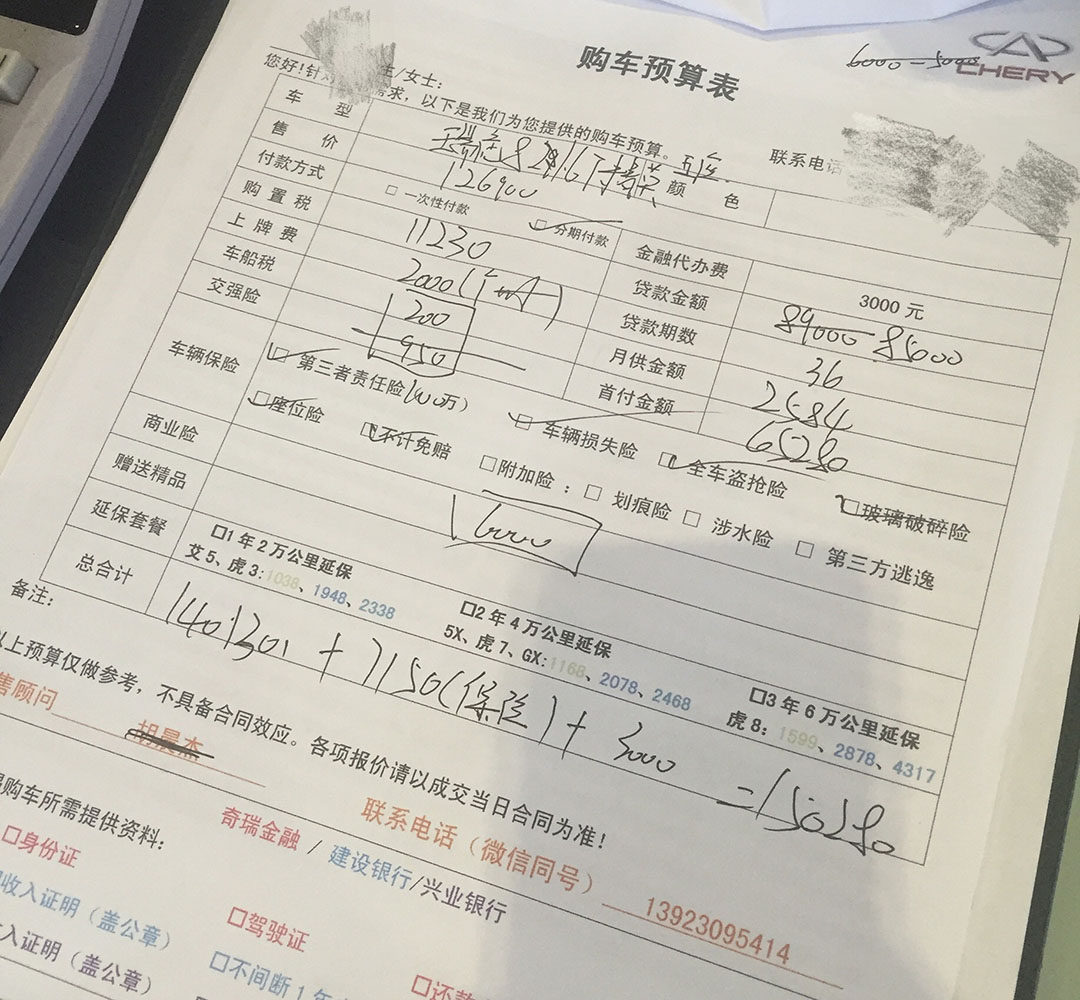 购车预算表
6000-5000
CHERY
您好!针 生/女士:
需求，以下是我们为您提供的购车预算。
联系电话
车型 瑞虎8 1.6T 五座 颜色
售价 126900
付款方式 □一次性付款 □分期付款 金融代办费 3000元
购置税 11230 贷款金额 89000 85000
上牌费 2000 贷款期数 36
车船税 200 月供金额 2584
交强险 950 首付金额 65280
车辆保险 □第三者责任险(100万) □车辆损失险 □全车盗抢险 □玻璃破碎险
□座位险 □不计免赔 □附加险：□划痕险 □涉水险 □第三方逃逸
商业险 6000
赠送精品
延保套餐 □1年2万公里延保 □2年4万公里延保 □3年6万公里延保
艾5、虎3:1038、1948、2338 5X、虎7、GX:1168、2078、2468 虎8：1599、2878、4317
总合计 140130 + 7150(保险) + 3000 = 150280
备注:
以上预算仅做参考，不具备合同效应。各项报价请以成交当日合同为准！
售顾问 胡晨杰 联系电话（微信同号） 13923095414
购车所需提供资料: 奇瑞金融 / 建设银行/兴业银行
□身份证 □驾驶证 □还款
收入证明（盖公章） □不间断1年
入证明（盖公章）